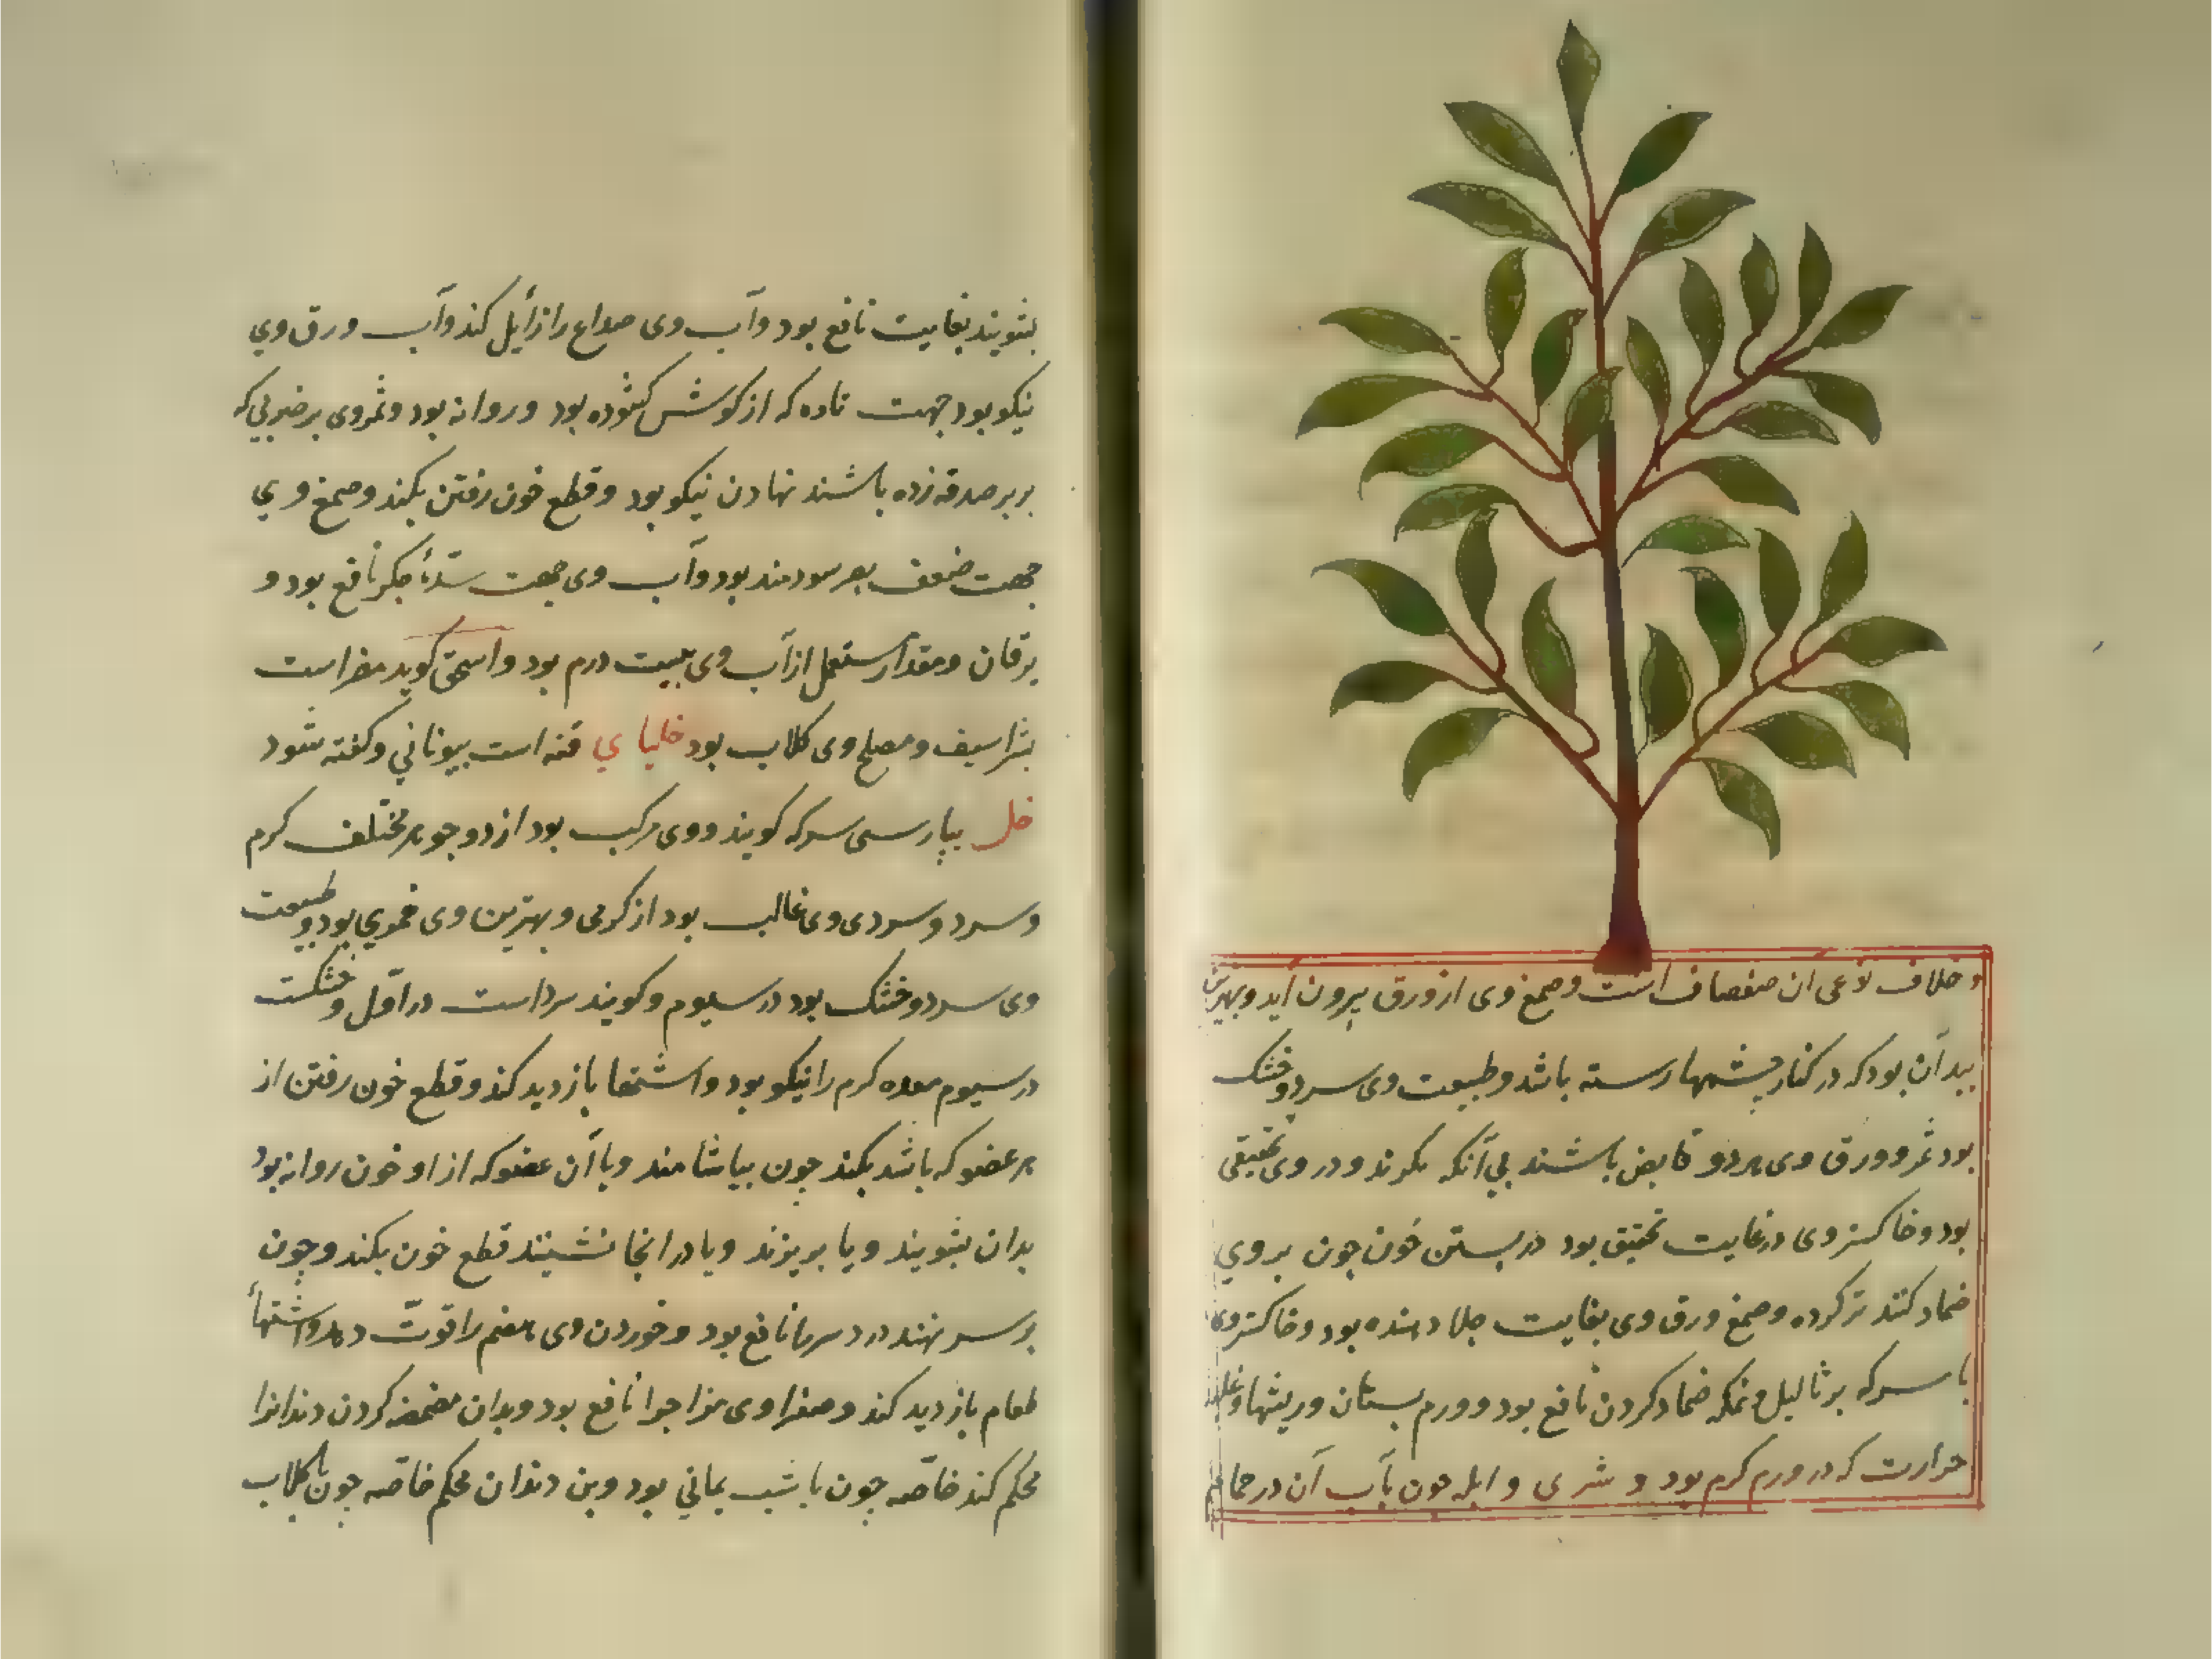 و خلاف نوعی ان صفصاف است و صمغ وی از ورق بیرون آید و بهترین
بید آن بود که در کنار چشمها رسته باشد و طبیعت وی سرد و خشک
بود ثمر و ورق وی هر دو قابض باشند بی آنکه بگزند و در وی تخفیفی
بود و خاکستر وی در غایت تخفیف بود در بستن خون چون بر وی
ضماد کنند تر کرده و صمغ ورق وی بغایت جلا دهنده بود و خاکستر وی
با سرکه بر ثالیل و نمله ضماد کردن نافع بود و ورم پستان و ریشها و
حرارت که در ورم کرم بود و شری و ابله چون بآب آن در حمام
بشویند بغایت نافع بود و آب وی صداع را زایل کند و آب ورق وی
نیکو بود جهت ماده که از کوش کشوده بود و روانه بود و ثمر وی بر ضربی که
بر بر صدقه زده باشند نهادن نیکو بود و قطع خون رفتن بکند و صمغ وی
جهت ضعف بصر سودمند بود و آب وی جهت سدّهٔ جکر نافع بود و
یرقان و مقدار مستعمل از آب وی بیست درم بود و اسحق کوید مضر است
بشراسیف و مصلح وی کلاب بود خلیای ي قنه است بیونانی و کفته شود
خل بپارسی سرکه کویند و وی مرکب بود از دو جوهر مختلف کرم
و سرد و سردی وی غالب بود از کرمی و بهترین وی خمری بود و طبیعت
وی سرد و خشک بود در سیوم و کویند سرد است در اوّل و خشکست
در سیوم معده کرم را نیکو بود و اشتها بازدید کند و قطع خون رفتن از
هر عضو که باشد بکند چون بیاشامند و یا آن عضو که از او خون روانه بود
بدان بشویند و یا بریزند و یا در انجا نشینند قطع خون بکند و چون
بر سر نهند درد سر را نافع بود و خوردن وی هضم را قوّت دهد و اشتهاء
طعام بازدید کند و صفراوی مزاج را نافع بود و بدان مضمضه کردن دندانرا
محکم کند خاصّه چون با شب یمانی بود و بن دندان محکم خاصّه چون با کلاب